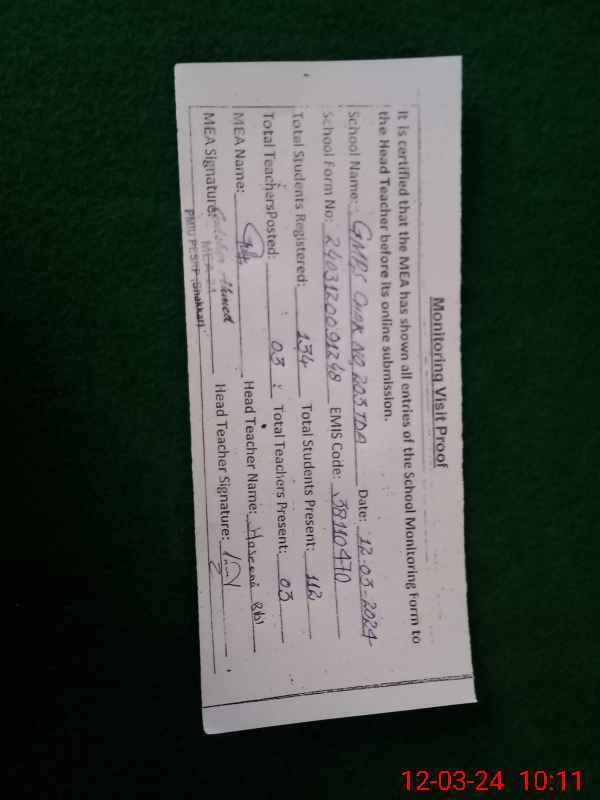 Monitoring Visit Proof
It is certified that the MEA has shown all entries of the School Monitoring Form to
the Head Teacher before its online submission.
School Name: GMPS Chak No 203 TDA Date: 12-03-2024
School Form No: 2403120091248 EMIS Code: 38110470
Total Students Registered: 134 Total Students Present: 112
Total TeachersPosted: 03 Total Teachers Present: 03
MEA Name: Head Teacher Name: Haseena Bibi
MEA Signature: Ahmed Head Teacher Signature:
MEA
PMIU PESRP (Bhakkar)
12-03-24 10:11